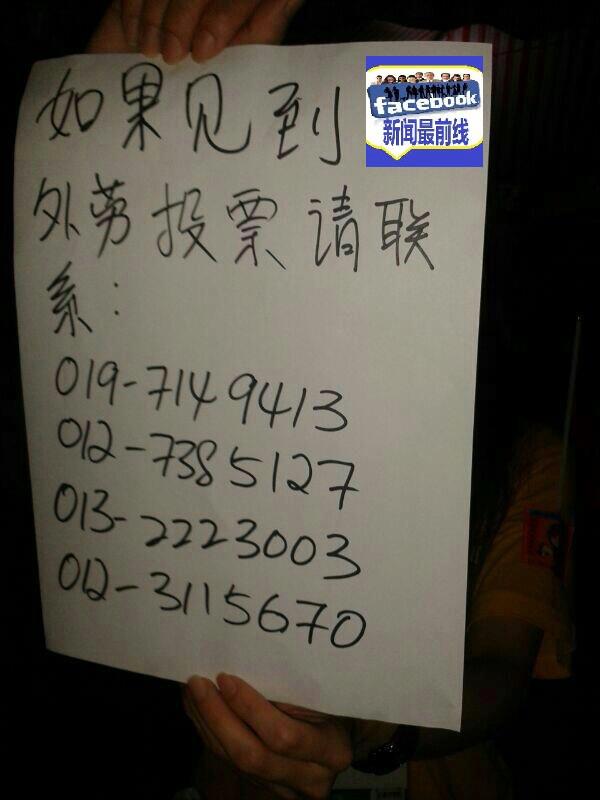 如果见到
facebook
新闻最前线
外劳投票请联
系:
019-7149413
012-7385127
013-2223003
012-3115670